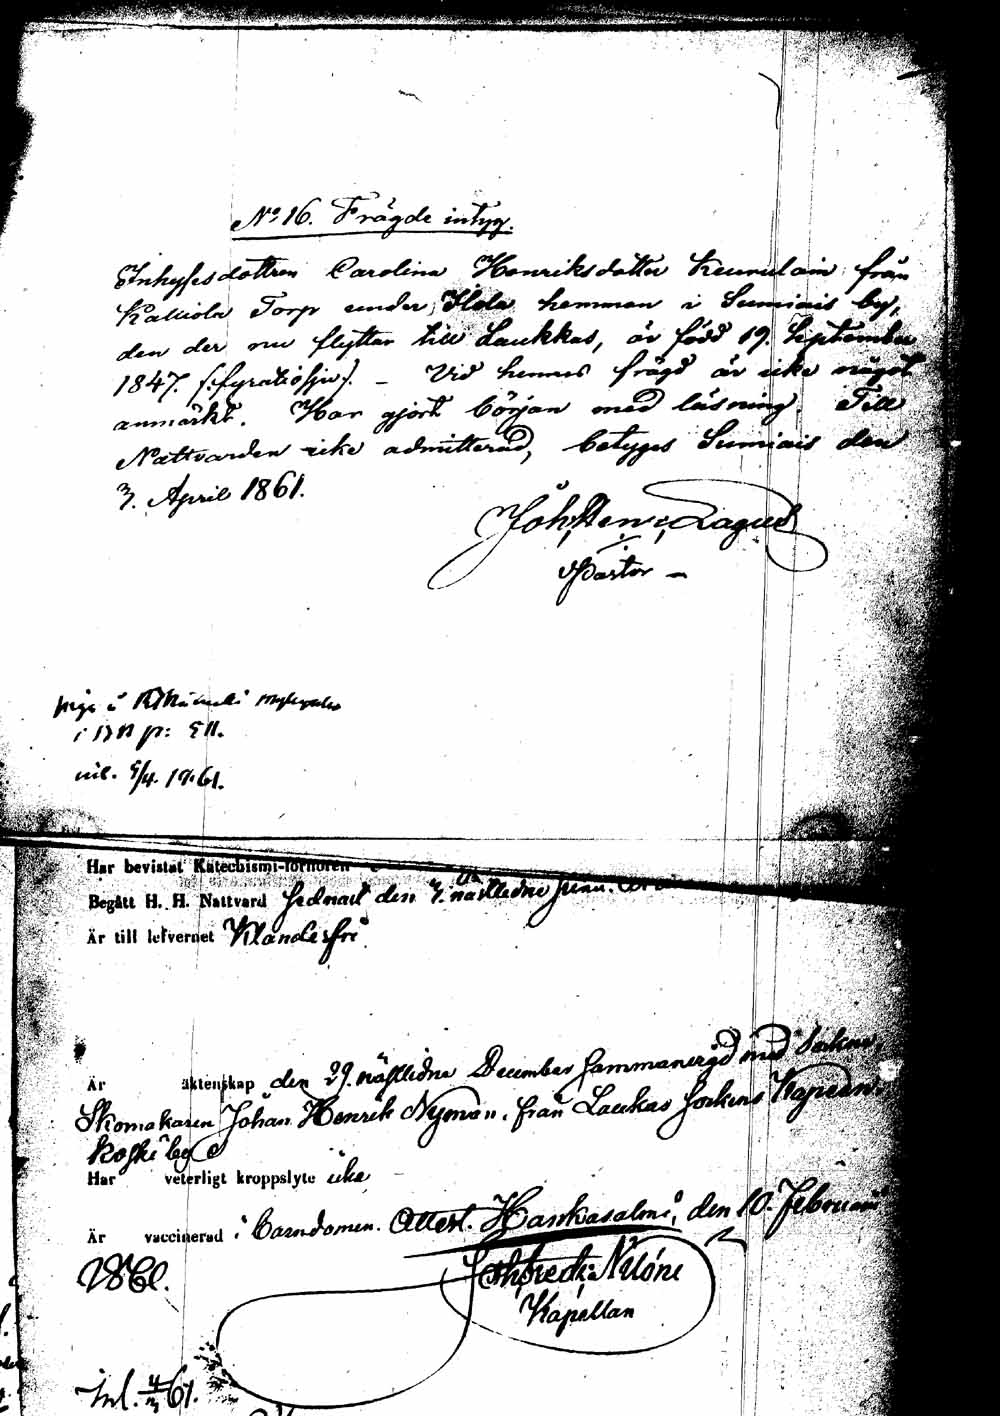 No 16. Frägde intyg.
Inhyses dottren Carolina Henriksdotter Keurulain från
Kalliola Torp under Hola hemman i Sumiais by,
den der nu flyttar till Laukkas, är född 19. September
1847. /:fyratiosju:/. – Vid hennes frägd är icke något
anmärkt. Har gjort början med läsning. Till
Nattvarden icke admitterad, betyges Sumiais den
3. April 1861.
Joh: Hen: Lagus
Pastor –
piga i
i p: 511.
inl. 5/4. 1861.
Har bevistat Katechismi-förhören
Begått H. H. Nattvard sednast den 3. nästledne
Är till lefvernet Klanderfri
Är äktenskap den 29. nästledne December sammanvigd med Sockne
Skomakaren Johan Henrik Nyman, från Laukas Sockens Kapeen-
koski by
Har veterligt kroppslyte icke
Är vaccinerad i barndomen. Attest. Hankasalmi, den 10. Februari
1861.
Joh: Fredr: Nilóni
Kapellan
Inl. 4/3 61.